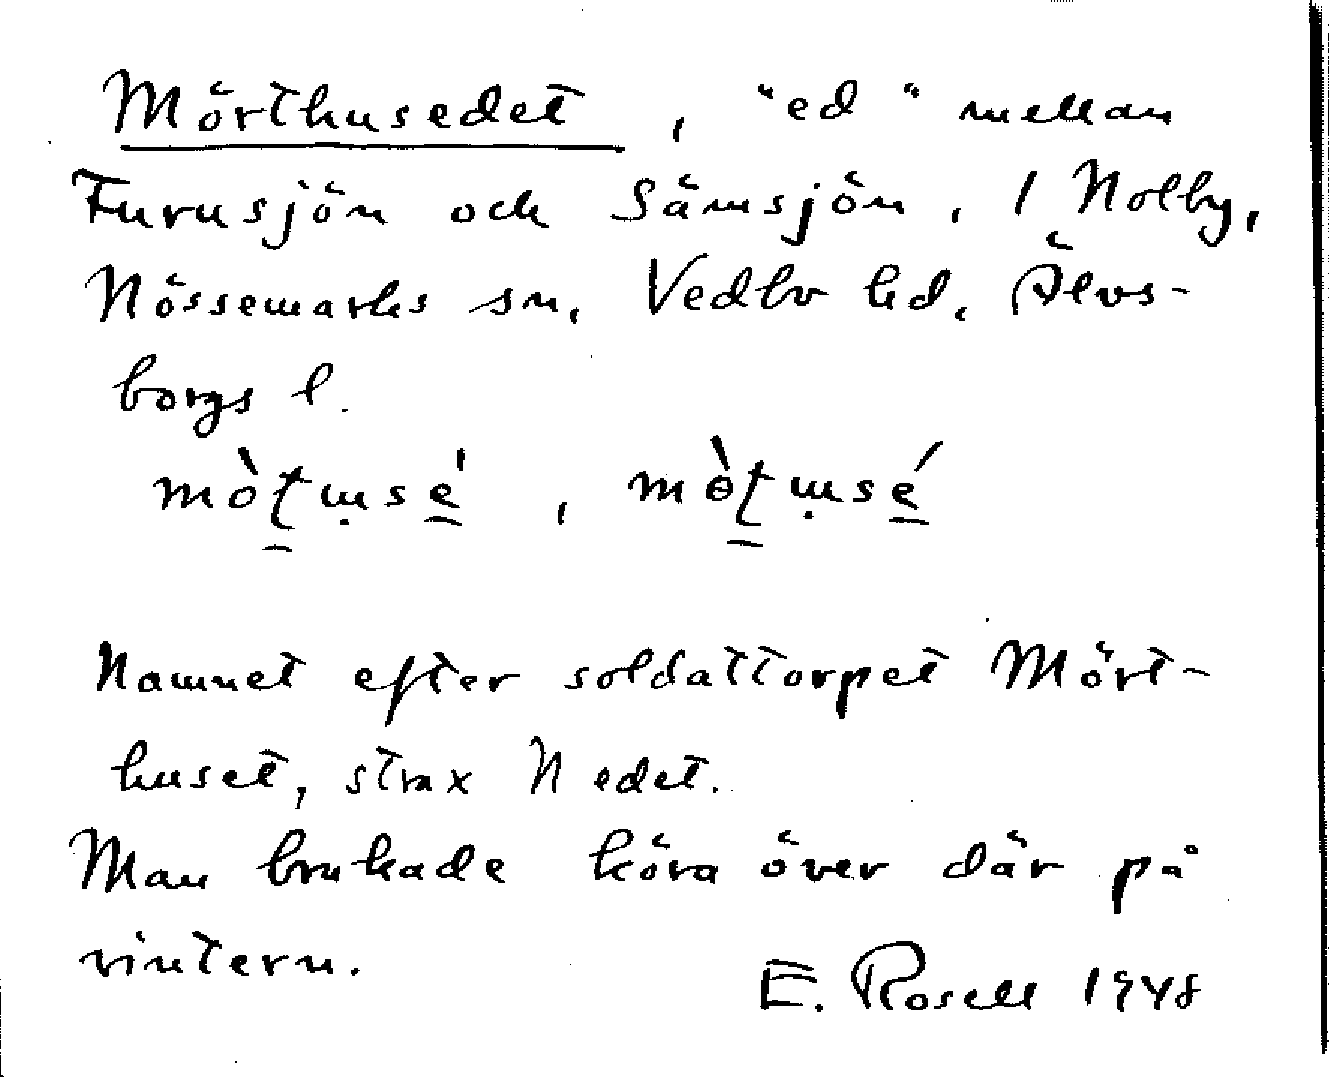 Mörthusedet, "ed" mellan
Furusjön och Sämsjön, 1 Nolby,
Nössemarks sn, Vedbo hd, Älvs-
borgs l.
mò̱ʈɯ̣sé̱, mɵ̀ʈɯ̣sé̱
Namnet efter soldattorpet Mört-
huset, strax N edet.
Man brukade köra över där på
vintern.
E. Rosell 1948